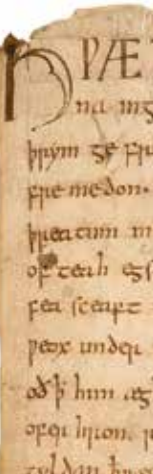 HǷÆ
na ing
þrym ge fru
fre medon.
þreatum m
of teah egs
fea sceaft
ƿeox under
oð ꝥ him æg
ofer hron r
gyldan þ